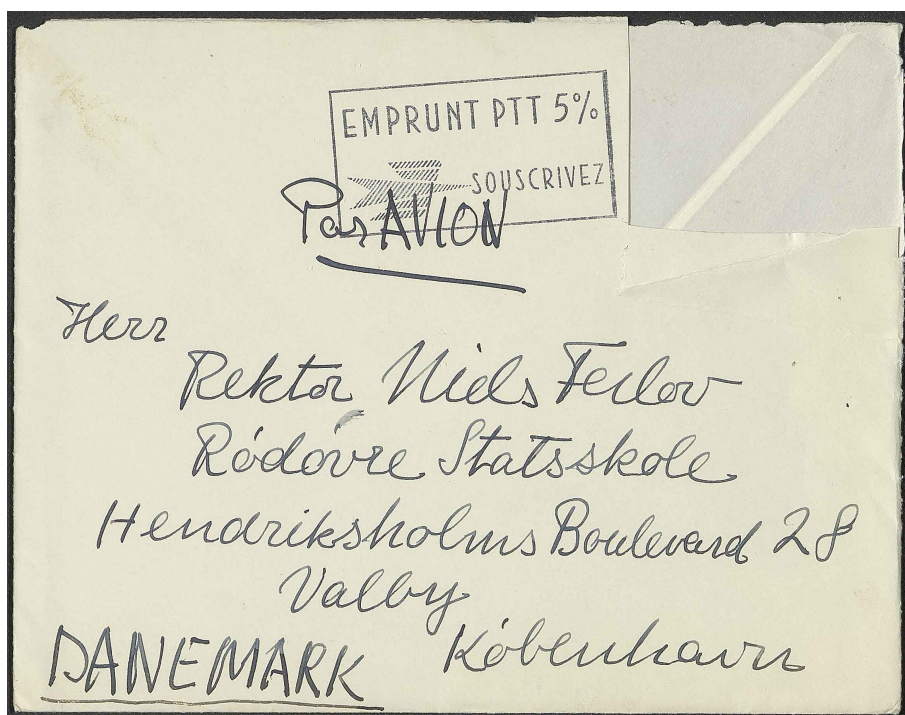 EMPRUNT PTT 5%
SOUSCRIVEZ
Par AVION
Herr
Rektor Niels Ferlov
Ródóvre Statsskole
Hendriksholms Boulevard 28
Valby
Kóbenhavn
DANEMARK